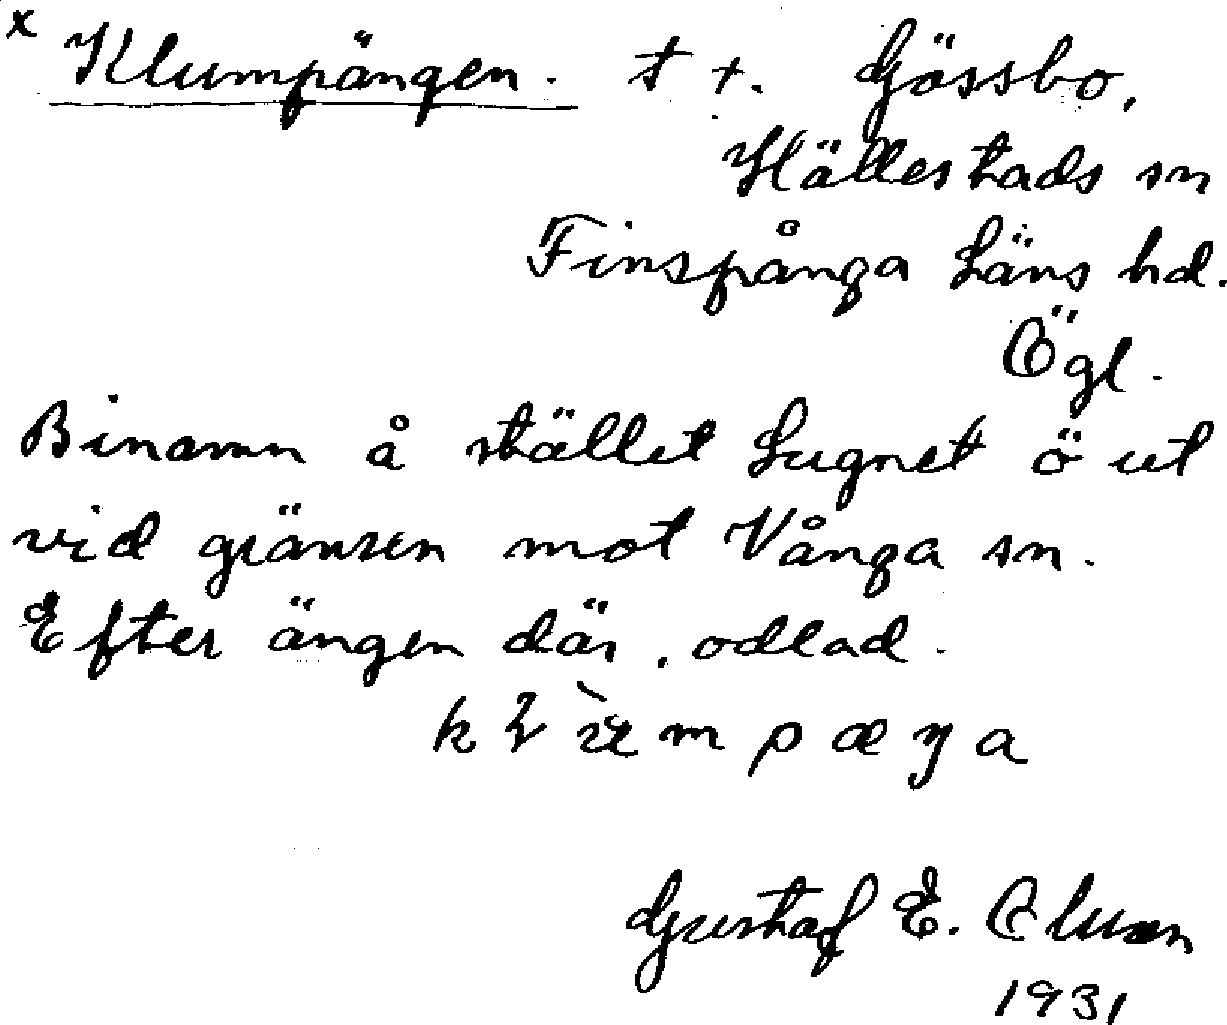 x Klumpängen. t +. Gössbo,
Hällestads sn
Finspånga Läns hd.
Ögl.
Binamn å stället Lugnet ö ut
vid gränsen mot Vånga sn.
Efter ängen där, odlad.
Gustaf E.
1931